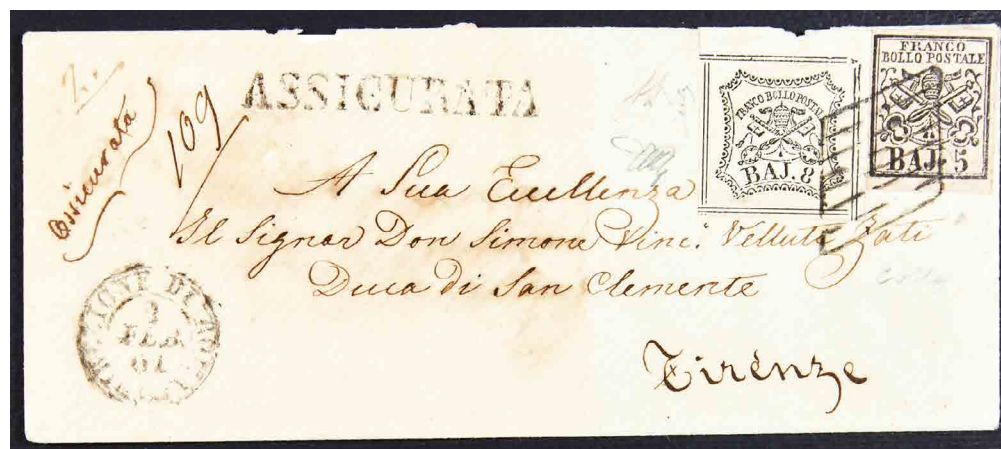 Assicurata
109
ASSICURATA
FRANCO BOLLO POSTAL
BAJ. 8
FRANCO
BOLLO POSTALE
BAJ. 5
A Sua Eccellenza
Il Signor Don Simone Vinc: Velluti Zati
Duca di San Clemente
Firenze
DIREZIONE DI
2
FEB.
61